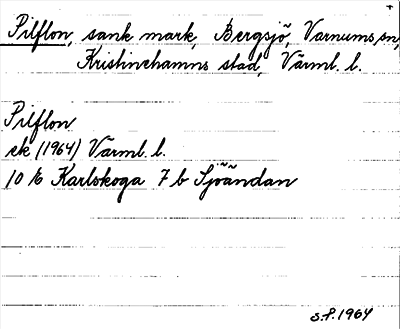 Pilflon, sank mark, Bergsjö, Varnums sn,
Kristinehamns stad, Värml. l.
Pilflon
ek (1964) Värml. l.
10 E Karlskoga 7 b Sjöändan
S.F. 1964